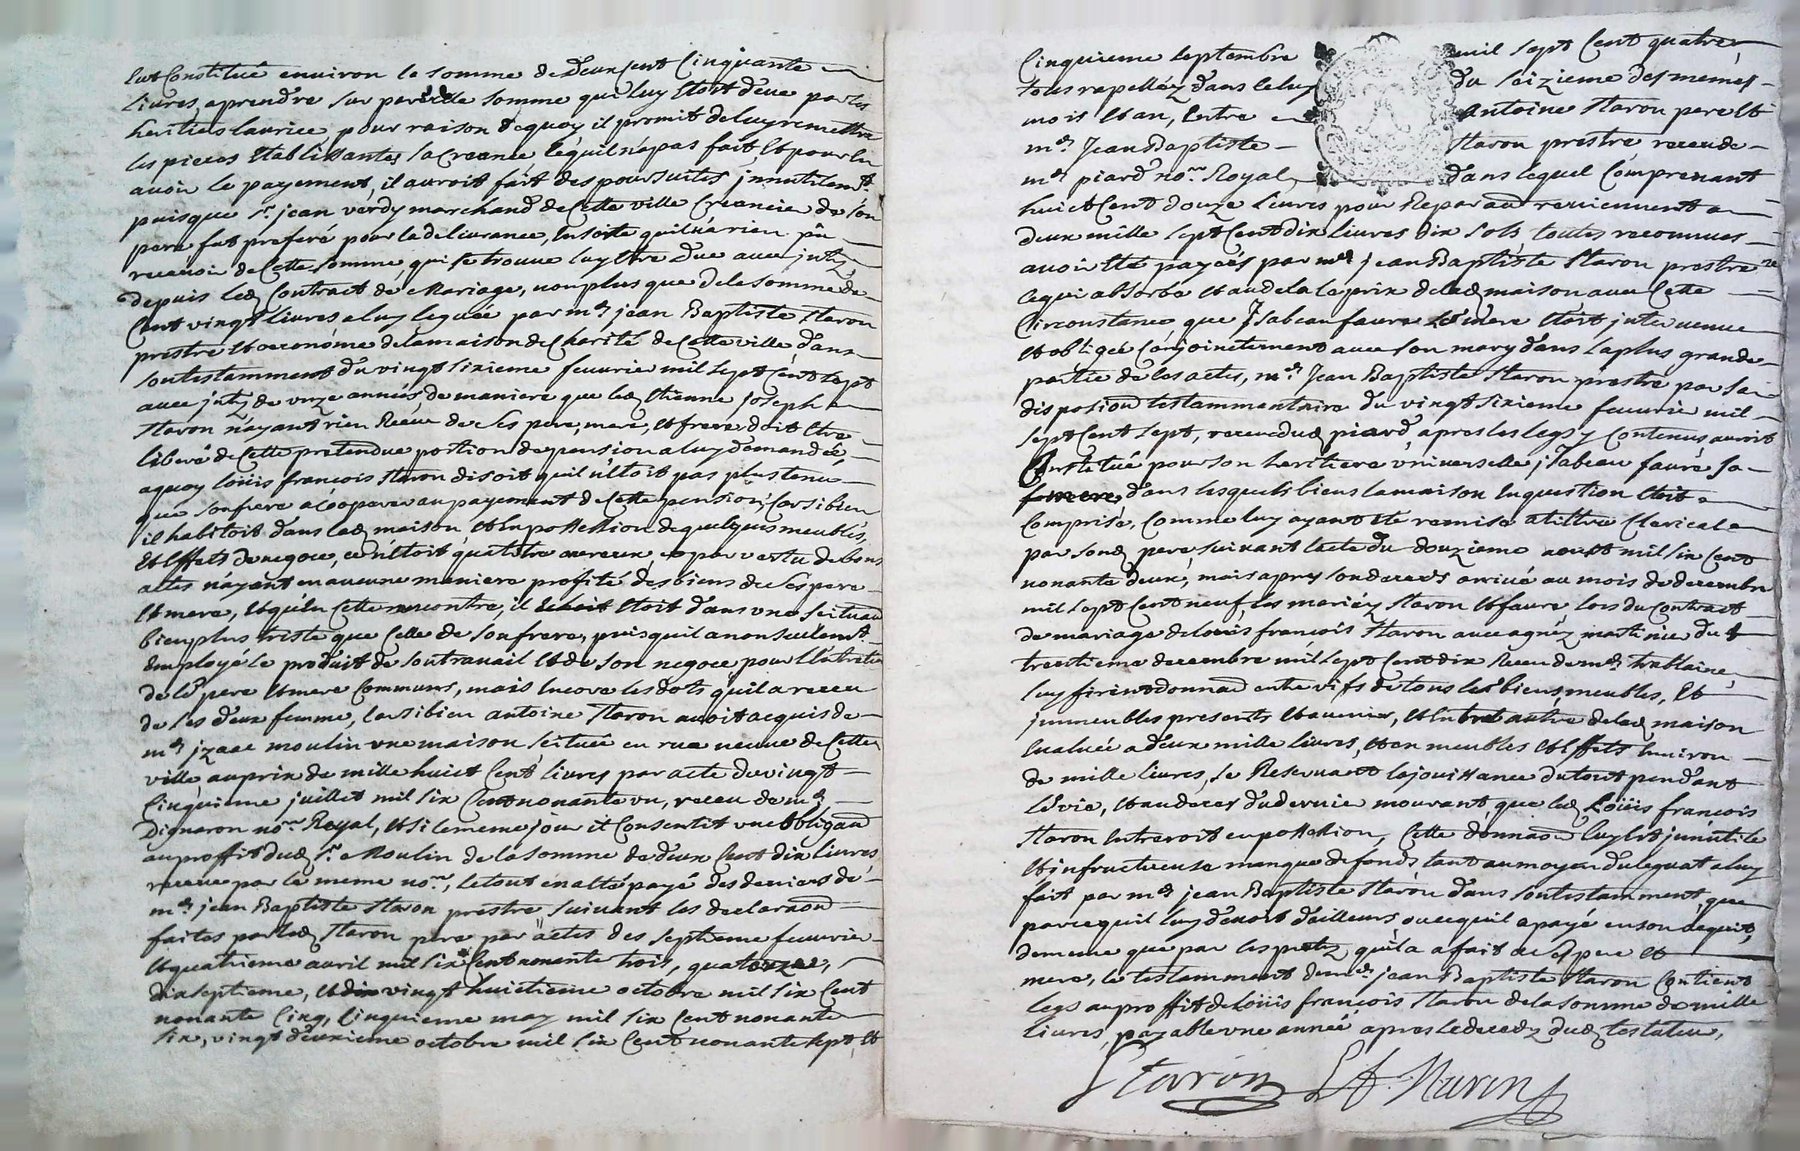 luy Constitué environ la somme de deux Cent Cinquante
livres, aprendre sur pareille somme que luy Etoit deue par les
heritiers laurice, pour raison dequoy il promit de luy remettre
les pieces Etablissantes sa Creance Cequil n'a pas fait, Et pour En
avoir le payement, il auroit fait des poursuites jnnutilemt.
puisque Sr. jean verdy marchand de Cette ville Creancier de son
pere fut preferé pour la delivrance, En sorte quil n'a rien pû
recevoir de Cette somme, qui se trouve luy Etre due avec jntz
depuis led. Contract de Mariage, non plus que de la somme de
Cent vingt livres a luy leguée par mre. jean Baptiste Staron
prestre Et oeconóme de la maison de Charité de Cette ville dans
son testamment du vingt sixieme fevrier mil sept Cent sept
avec jntz de onze années de maniere que led. Etienne joseph
Staron n'ayant rien Receu de Ses pere, mere, Et frere doit Etre
liberé de Cette pretendue portion de pension a luy demandée,
aquoy loüis françois Staron disoit quil n'Etoit pas plus tenu
que son frere a Cooperer au payement de Cette pension, Car si bien
il habitoit dans lad. maison Et En possession de quelques meubles,
Et Effets de negoce, ce n'Etoit qu'a titre onereux et par vertu de bons
actes n'ayant en aucune maniere profité des biens de Ses pere
Et mere, Et qu'En Cette rencontre, il Etoit dans une scituaon
bien plus triste que Celle de son frere, puis quil a non seulemt.
Employé le produit de son travail Et de son negoce pour l'Entretien
de Ses pere Et mere Communs, mais Encore les dots quil a receu
de Ses deux femme, Car si bien antoine Staron avoit acquis de
mre. jzaac moulin une maison scituée en rue neuve de Cette
ville au prix de mille huict Cent livres par acte du vingt
Cinquieme juillet mil six Cent nonante un, receu de me.
Dignaron nore. Royal, Et si le meme jour il Consentit une obligaon
au proffit dud. Sr. Moulin de la somme de deux Cent dix livres
receue par le meme nore., le tout en a Eté payé des deniers de
mre. jean Baptiste Staron prestre, suivant les declaraons
faites par led. Staron pere par actes des septieme fevrier
Et quatrieme avril mil six Cent nonante trois, quatorze,
dixseptieme, Et vingt huictieme octobre mil six Cent
nonante Cinq, Cinquieme may mil six Cent nonante
six, vingt deuxieme octobre mil six Cent nonante sept, Et
Cinquieme septembre mil sept Cent quatre,
tous rapellez dans Celuy du seizieme des memes
mois Et an, Entre Antoine Staron pere Et
mre. Jean Baptiste Staron prestre receu de
me. piard nore. Royal, dans lequel Comprenant
huict Cent douze livres pour Reparaons reviennent a
deux mille sept Cent dix livres dix sols toutes reconnues
avoir Eté payées par mre. jean Baptiste Staron prestre
Ce qui absorbe Et au dela le prix de lad. maison avec Cette
Circonstance, que Isabeau faure Sa mere Etoit jntervenue
Et obligée Conjoinctement avec son mary dans la plus grande
partie de Ces actes, mre. Jean Baptiste Staron prestre par sa
disposition testammentaire du vingt sixieme fevrier mil
sept Cent sept, receu dud. piard, apres les legs y Contenus auroit
Constitué pour son heritiere universelle jsabeau faure sa
mere, dans lesquels biens la maison En question Etoit
Comprise, Comme luy ayant Eté remise a tiltre Clerical
par sond. pere suivant l'acte du douzieme aoust mil six Cent
nonante deux, mais apres son deceds arrivé au mois de decembre
mil sept Cent neuf, les mariez Staron Et faure lors du Contract
de mariage de loüis françois Staron avec agnéz martinier du
trentieme decembre mil sept Cent dix Receu de me. tablaine,
luy firent donnaon entre vifs de tous les biens meubles, Et
jmmeubles presents Et avenir, Et Entre autre de lad. maison
Evaluée a deux mille livres, Et en meubles Et Effets Environ
de mille livres, se Reservant la jouissance du tout pendant
Leur vie, Et au deces du dernier mourant, que led. Loüis françois
Staron Entreroit en possession, Cette donnaon luy Est jnnutile
Et infructueuse manque de fonds tant au moyen du legat a luy
fait par mre. jean Baptiste Staron dans son testamment, que
parcequil luy devoit d'ailleurs ou cequil a payé en son acquit,
de meme que par les pretz quil a a fait a ses pere Et
mere, le testamment de mre. jean Baptiste Staron Contient
legs au proffit de loüis françois Staron de la somme de mille
livres, payable une année apres le decedz dud. testateur,
Staron